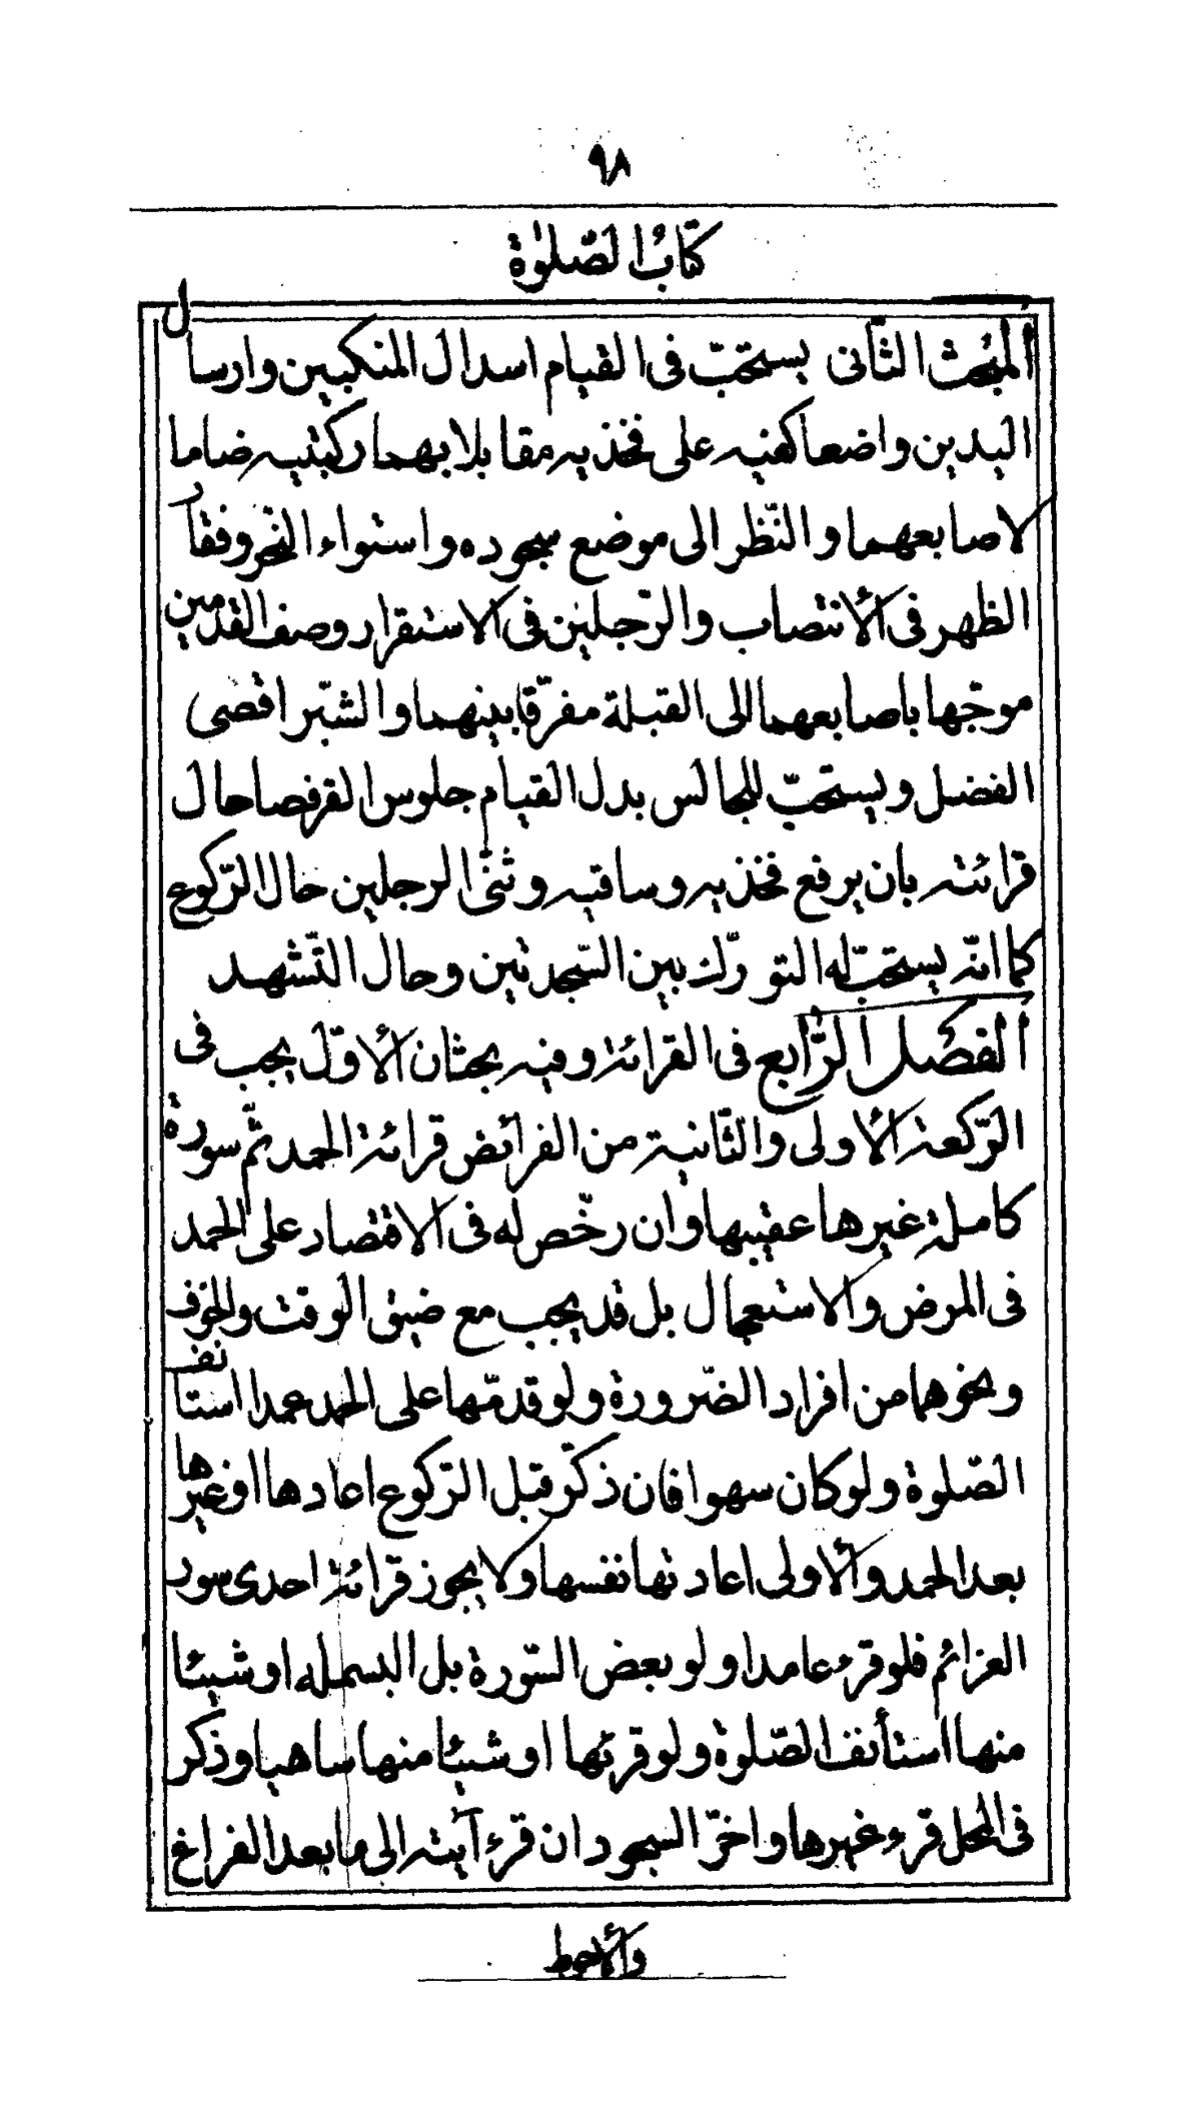 ٩٨
كتابُ الصّلوٰة
اَلمَبْحث الثّانى يستحبّ فى القيام اسدال المنكبين وارسال
اليدين واضعا كفيه على فخذيه مقابلا بهما ركبتيه ضاما
لاصابعهما والنّظر الى موضع سجوده واستواء النّحر وفقار
الظهر فى الأنتصاب والرّجلين فى الاستقرار وصف القدمين
موجّها باصابعهما الى القبلة مفرّقا بينهما والشّبر اقصى
الفضل ويستحبّ للجالس بدل القيام جلوس القرفصا حال
قرائته بان يرفع فخذيه وساقيه وثنّى الرجلين حال الرّكوع
كما انّه يستحبّ له التورّك بين السّجدتين وحال التّشهد
اَلفَصْل الرَّابع فى القرائة وفيه بحثان الأوّل يجب فى
الرّكعة الأولى والثّانية من الفرائض قرائة الحمد ثمّ سورة
كاملة غيرها عقيبها وان رخّص له فى الاقتصار على الحمد
فى المرض والاستعجال بل قد يجب مع ضيق الوقت والخوف
ونحوهما من افراد الضّرورة ولو قدمّها على الحمد عمدا استانف
الصّلوة ولو كان سهوا فان ذكّر قبل الرّكوع اعادها او غيرها
بعد الحمد والأولى اعادتها نفسها ولا يجوز قرائة احدى سور
العزائم فلو قرء عامدا ولو بعض السّورة بل البسمله او شيئا
منها استأنف الصّلوة ولو قرئها او شيئا منها ساهيا وذكر
فى المحل قرء غيرها واخّر السجود ان قرء آيته الى ما بعد الفراغ
والأحوط